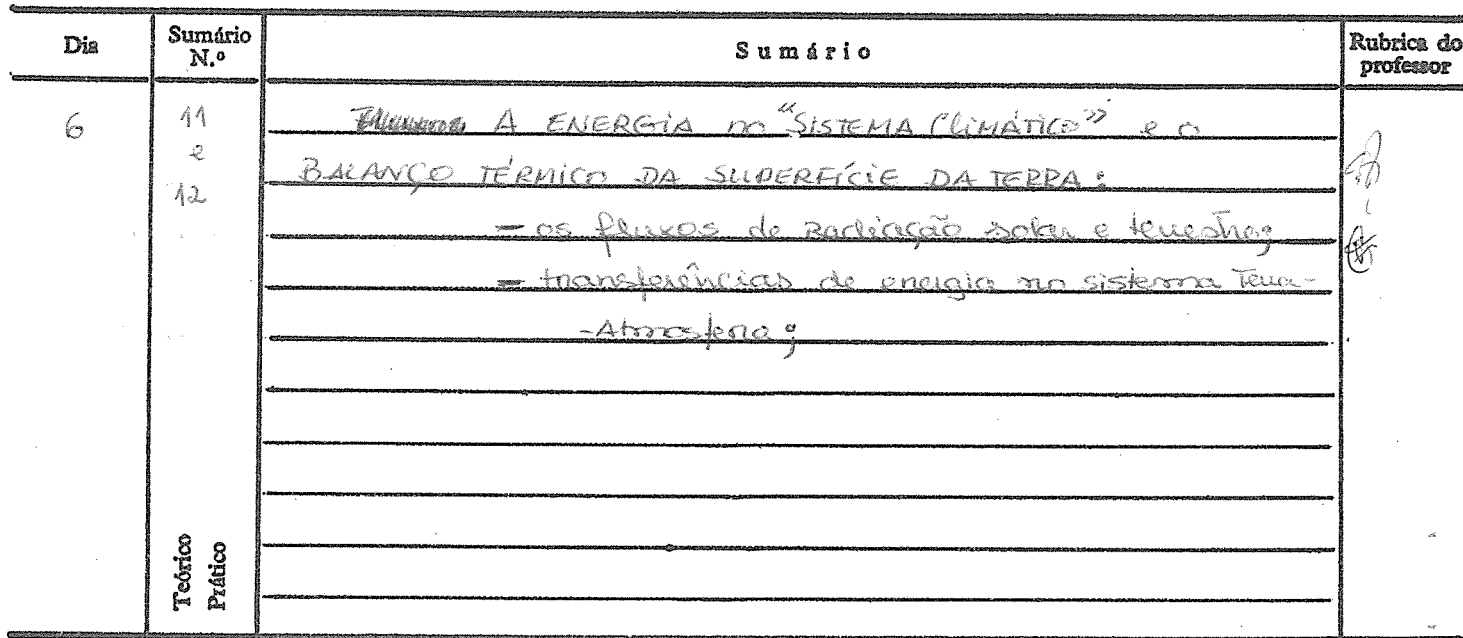 Dia
Sumário N.º
Sumário
Rubrica do professor
6
11
e
12
A ENERGIA no "SISTEMA CLIMÁTICO" e o
BALANÇO TÉRMICO DA SUPERFÍCIE DA TERRA:
- os fluxos de Radiação solar e terrestre;
- transferências de energia no sistema Terra-
-Atmosfera;
Teórico
Prático